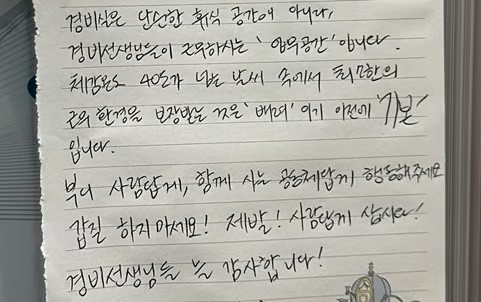 경비실은 단순한 휴식 공간이 아니라,
경비선생님들이 근무하시는 '업무공간' 입니다.
체감온도 40도가 넘는 날씨 속에서 최소한의
근무 환경을 보장받는 것은 '배려' 이기 이전에 '기본'
입니다.
부디 사람답게, 함께 사는 공동체답게 행동해주세요
갑질 하지마세요! 제발! 사람답게 삽시다!
경비선생님들 늘 감사합니다!